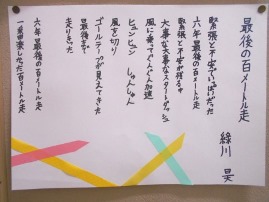 最後の百メートル走
緑川 昊
緊張と不安でいっぱいだった
六年最後の百メートル走
緊張と不安が残るが
大事な大事なスタートダッシュ
風に乗ってぐんぐん加速
ヒュンヒュン しゅんしゅん
風を切り
ゴールテープが見えてきた
最後まで
走りきった
六年最後の百メートル走
一番楽しかった百メートル走